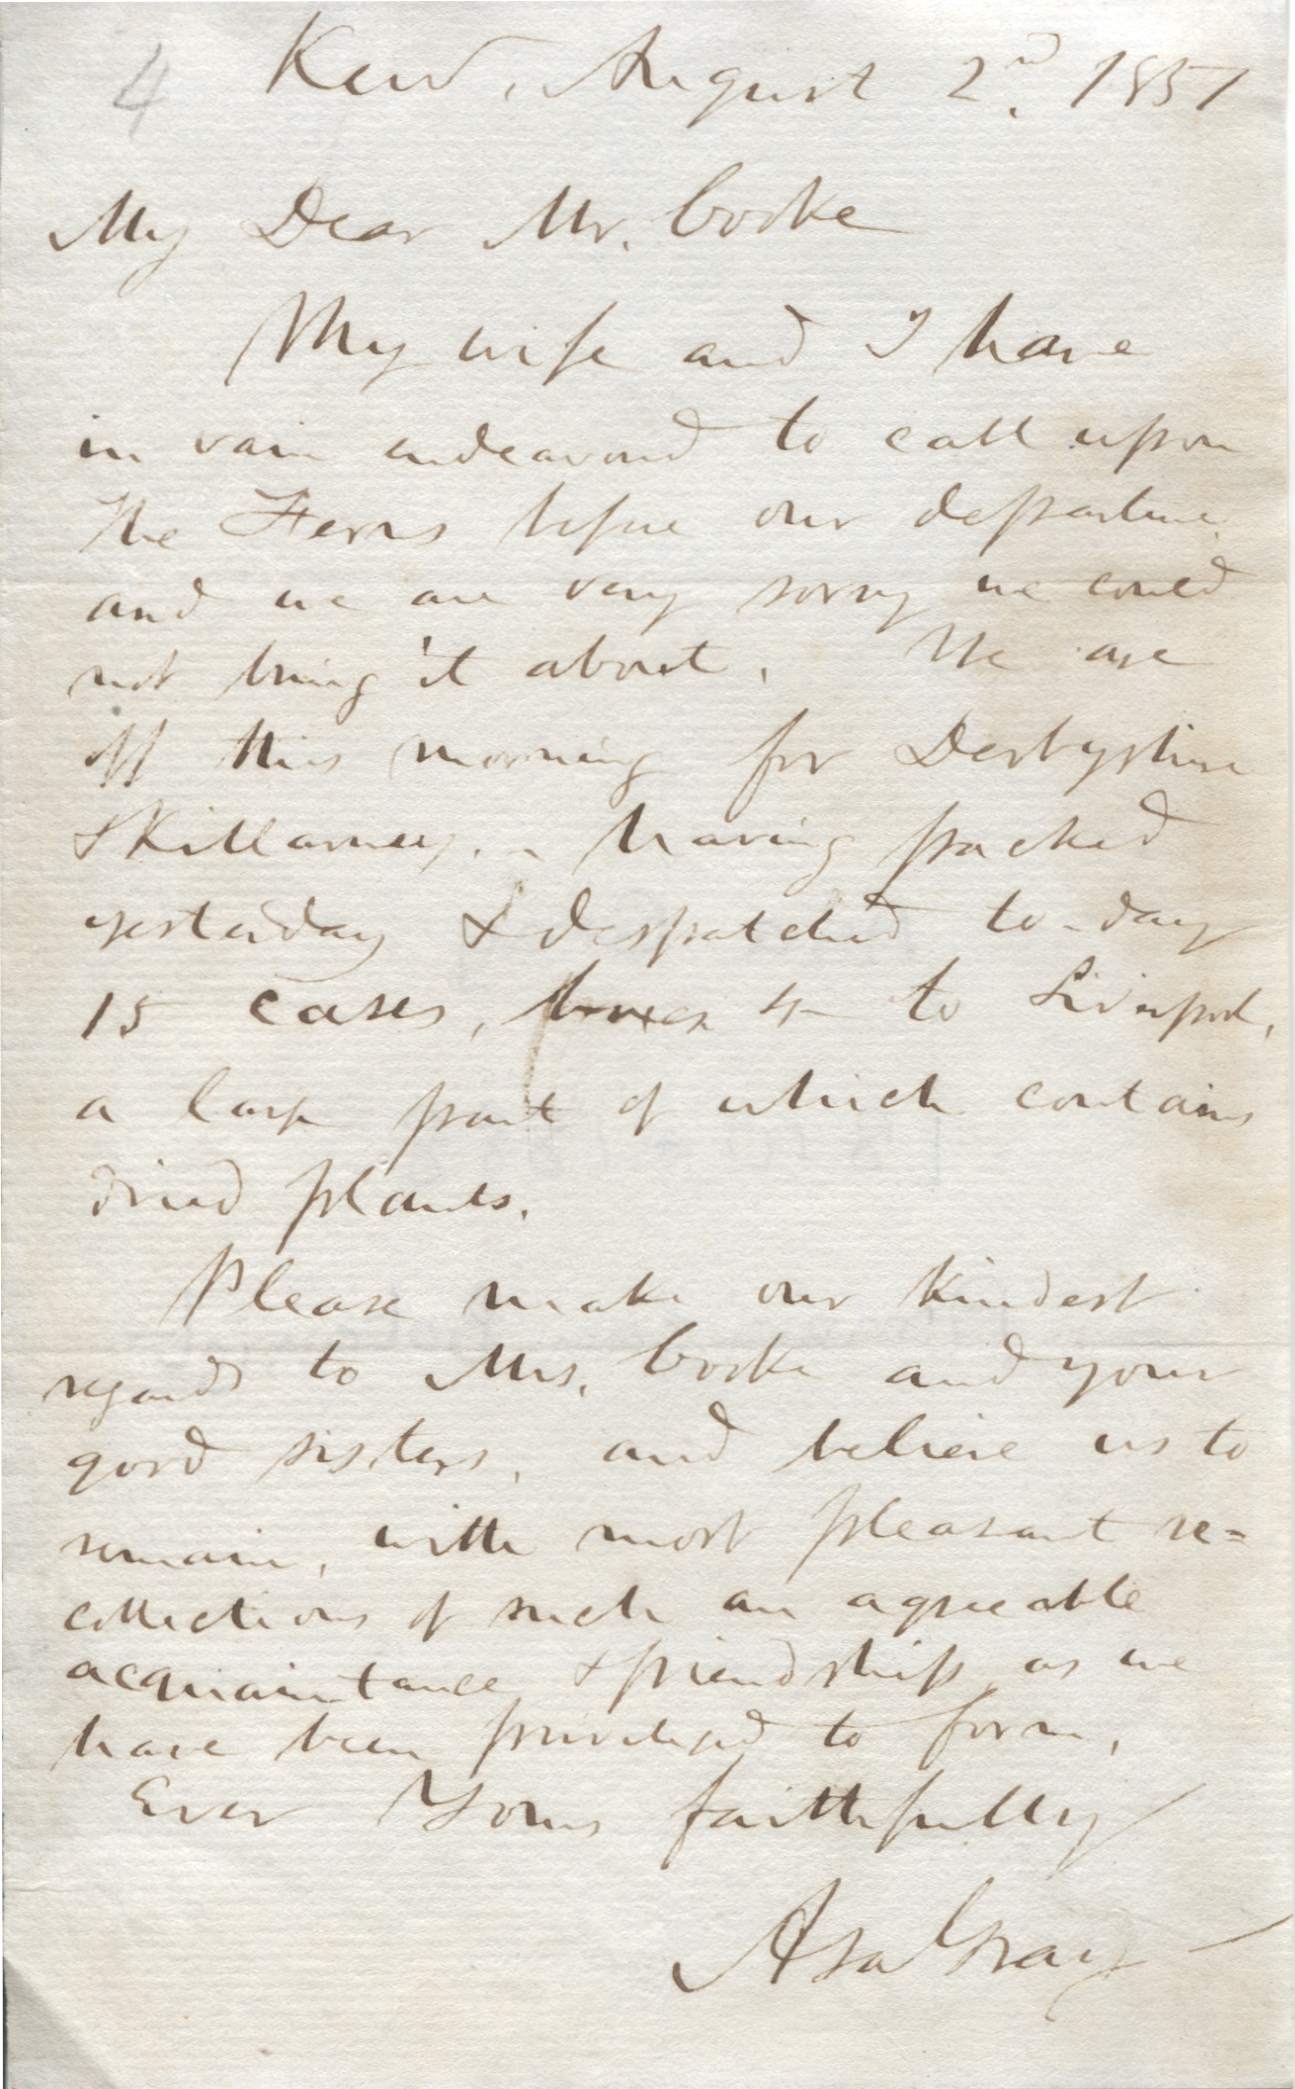 4
Kew, August 2nd. 1851
My Dear Mr. Cooke
My wife and I have
in vain endeavord to call upon
the Ferns before our departure
and we are very sorry we could
not bring it about. We are
off this morning for Derbyshire
& Killarney. - having packed
yesterday & despatched to-day
15 cases, boxes &c to Liverpool,
a large part of which contains
dried plants.
Please make our kindest
regards to Mrs. Cooke and your
good sisters, and believe us to
remain, with most pleasant re=
collections of such an agreeable
acquaintance & friendship as we
have been privileged to form,
Ever Yours faithfully
Asa Gray